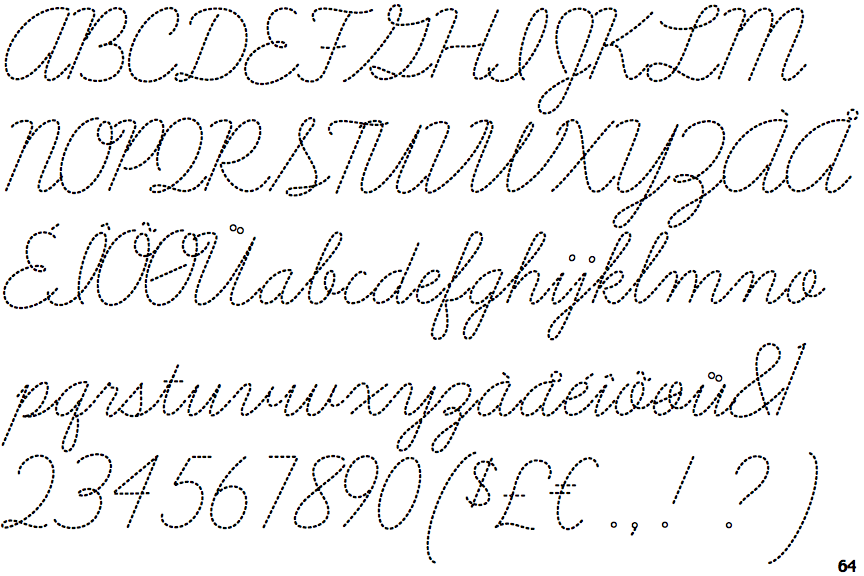 ABCDEFGHIJKLM
NOPQRSTUVWXYZÀÅ
ÉÎÖØÜabcdefghijklmno
pqrstuvwxyzàåéîöøü&1
234567890($£€.,!?)
64